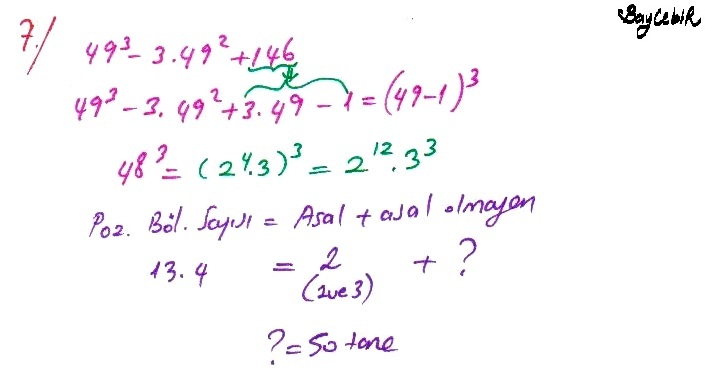 BayCebir
7./ 49³ - 3.49² + 146
49³ - 3.49² + 3.49 - 1 = (49-1)³
48³ = (2⁴.3)³ = 2¹².3³
Poz. Böl. Sayısı = Asal + asal olmayan
13.4 = 2 + ?
(2ve3)
? = 50 tane